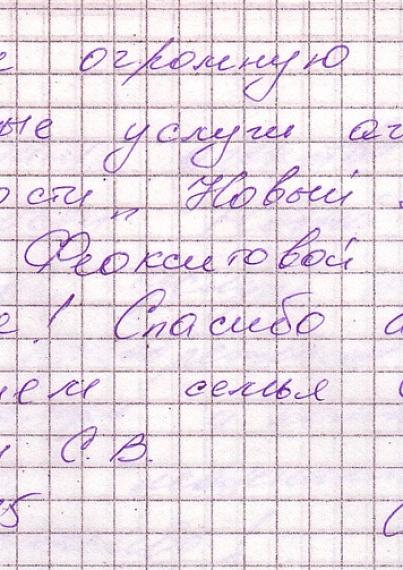 е огромную
ые услуги аг
ости „ Новый
Феоктистовой
е! Спасибо
ием семья С
и С. В.
5 С